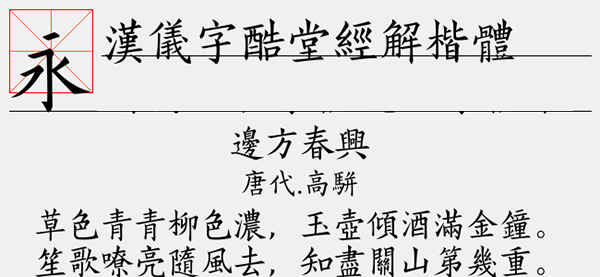 永
漢儀字酷堂經解楷體
邊方春興
唐代.高駢
草色青青柳色濃，玉壺傾酒滿金鐘。
笙歌嘹亮隨風去，知盡關山第幾重。